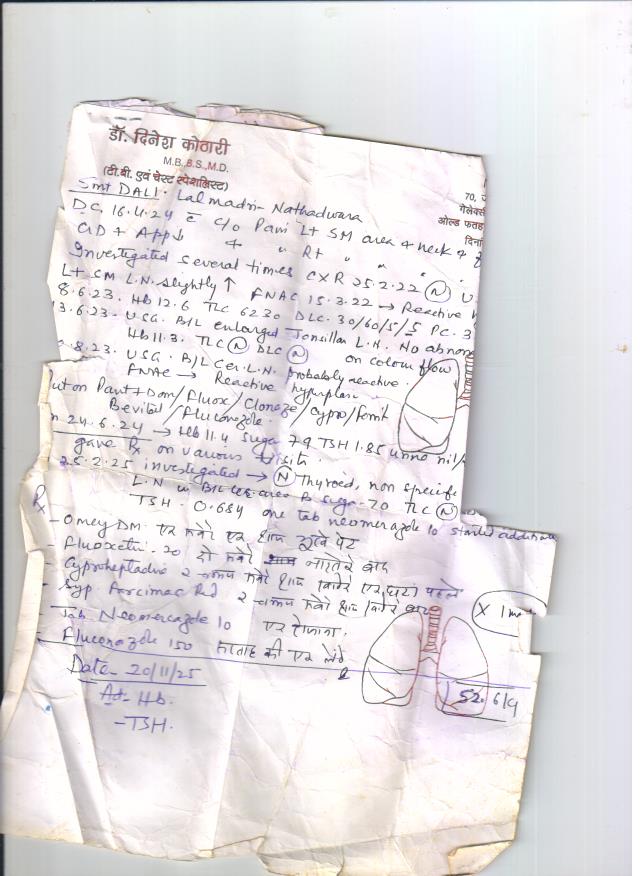 डॉ. दिनेश कोठारी
M.B.,B.S.,M.D.
(टी.बी. एवं चेस्ट स्पेशलिस्ट)
70,
गेलेक्सी
ओल्ड फतह
दिनां
Smt DALI. Lal madri - Nathadwara
DC. 16.4.24 c̄ c/o Pain Lt SM area + neck +
GD + App↓ + " Rt " " "
Investigated several times CXR 25.2.22 (N) U.
Lt SM L.N. slightly ↑ FNAC 15.3.22 → Reactive
8.6.23. Hb 12.6 TLC 6230 DLC. 30/60/5/5 PC. 3
3.6.23. USG. B/L enlarged Tonsillar L.N. No abnor
Hb 11.3. TLC (N) DLC (N) on colour flow
.8.23. USG. B/L Cer. L.N. probably reactive.
FNAC → Reactive hyperplasia
ut on Pant + Dom/Fluox/Clonaze/Cypro/
Bevital/Fluconazole.
24.6.24 → Hb 11.4 Suga 79 TSH 1.85 urine nil/
gave Rx on various visits
25.2.25 investigated → (N) Thyroid, non specific
L.N in B/L area B suga - 70 TLC (N)
TSH - 0.684 one tab neomerazole 10 started
Rx
- Omez DM. एक सवेरे एक शाम भूखे पेट
- Fluoxetin - 20 दो सवेरे नाश्ते के बाद
- Cyproheptadine 2 चम्मच सवेरे शाम एक घंटा पहले
- Syp. 2 चम्मच सवेरे शाम
Tab Neomercazole 10 एक रोजाना.
- Fluconazole 150 सप्ताह की एक
X 1 m
Date - 20/11/25
Ad - Hb.
- TSH.
52. 6/9